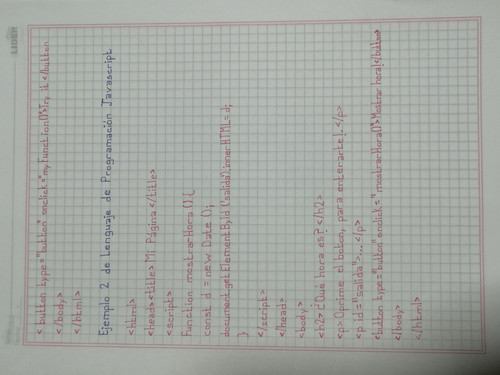 <button type="button" onclick="myFunction()">Try it</button
</body>
</html>
Ejemplo 2 de Lenguaje de Programación Javascript
<html>
<head><title>Mi Página</title>
<script>
Function mostrarHora () {
const d = new Date ();
document.getElementById ('salida).innerHTML = d;
}
</script>
</head>
<body>
<h2>¿Qué hora es?</h2>
<p>Oprime el boton, para enterarte!.</p>
<p id="salida">...</p>
<button type="button" onclick="mostrarHora()">Mostrar hora!</button>
</body>
</html>